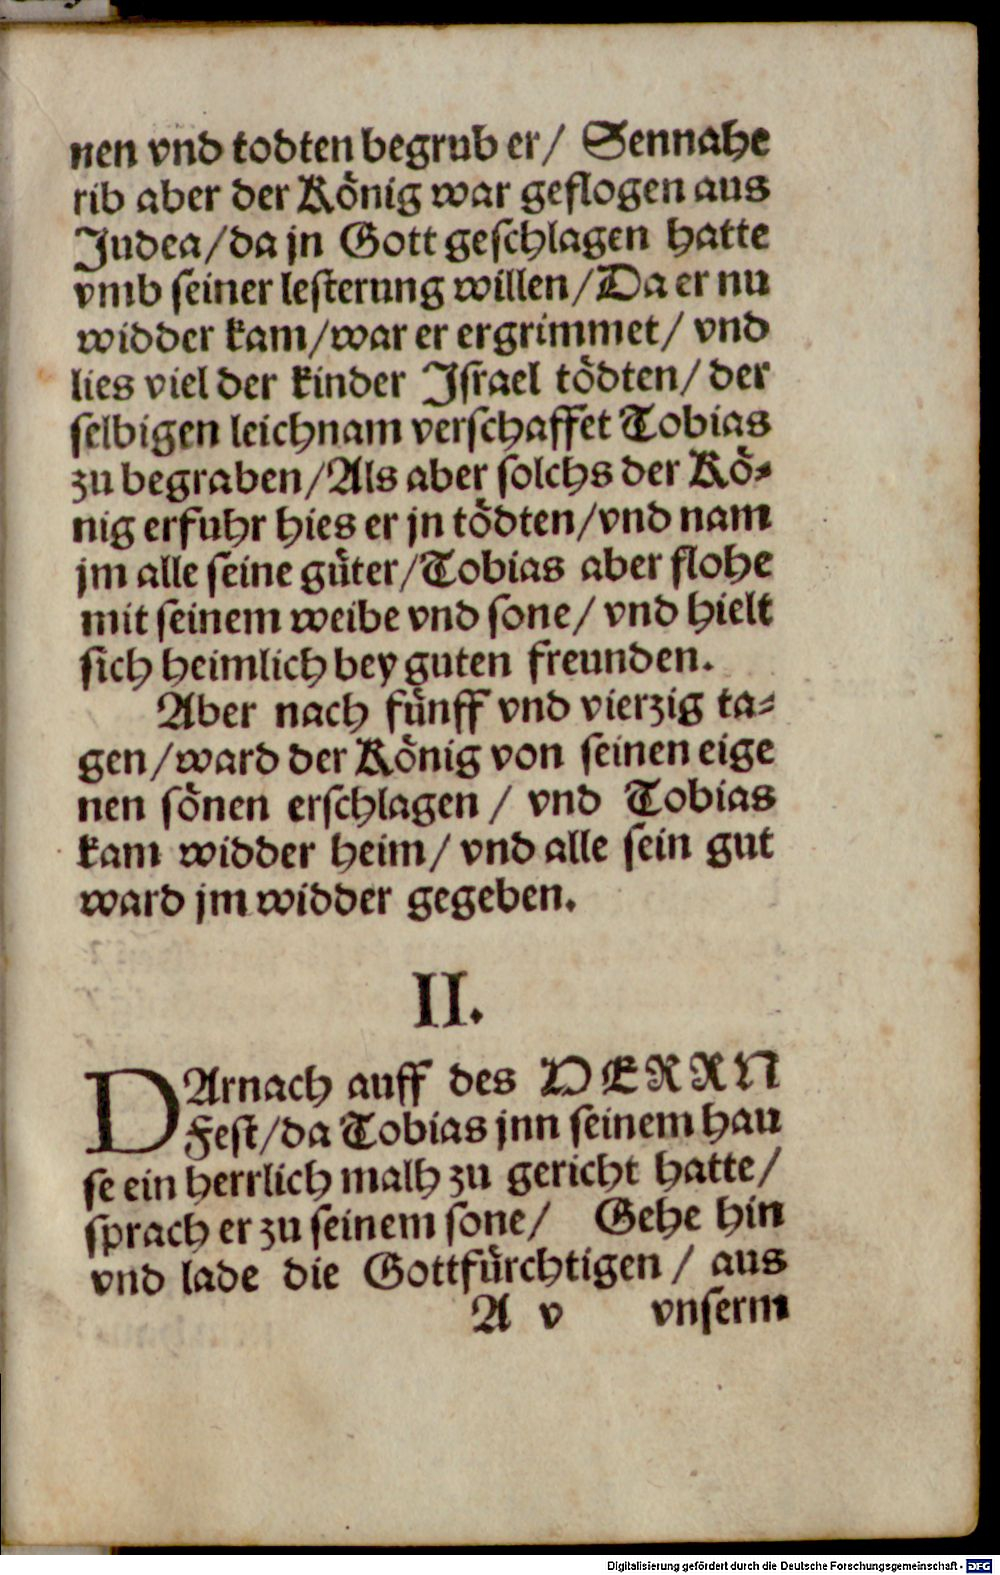 nen vnd todten begrub er/ Sennahe
rib aber der König war geflogen aus
Judea/da jn Gott geschlagen hatte
vmb seiner lesterung willen/Da er nu
widder kam/war er ergrimmet/ vnd
lies viel der kinder Israel tödten/ der
selbigen leichnam verschaffet Tobias
zu begraben/Als aber solchs der Kö-
nig erfuhr hies er jn tödten/vnd nam
jm alle seine güter/Tobias aber flohe
mit seinem weibe vnd sone/ vnd hielt
sich heimlich bey guten freunden.
Aber nach fünff vnd vierzig ta-
gen/ward der König von seinen eige
nen sönen erschlagen/ vnd Tobias
kam widder heim/ vnd alle sein gut
ward jm widder gegeben.
II.
DArnach auff des HERRN
Fest/da Tobias jnn seinem hau
se ein herrlich malh zu gericht hatte/
sprach er zu seinem sone/ Gehe hin
vnd lade die Gottfürchtigen/ aus
A v vnserm
Digitalisierung gefördert durch die Deutsche Forschungsgemeinschaft - DFG